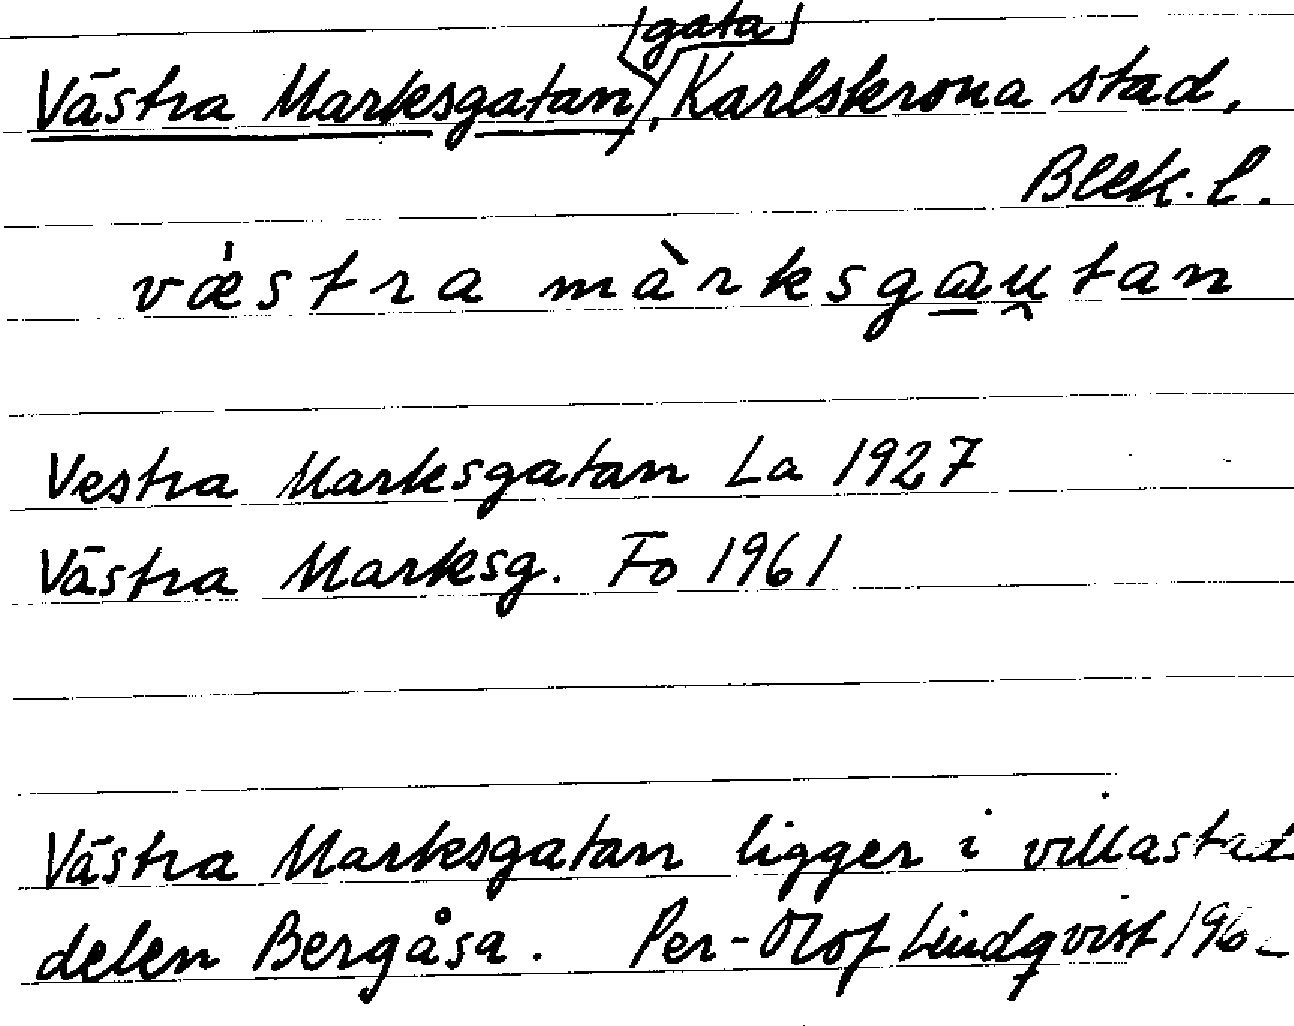 gata
Västra Marksgatan, Karlskrona stad,
Blek. l.
væ̀stra màrksgɑu̯tan
Vestra Marksgatan La 1927
Västra Marksg. Fo 1961
Västra Marksgatan ligger i villastads
delen Bergåsa. Per-Olof Lindqvist